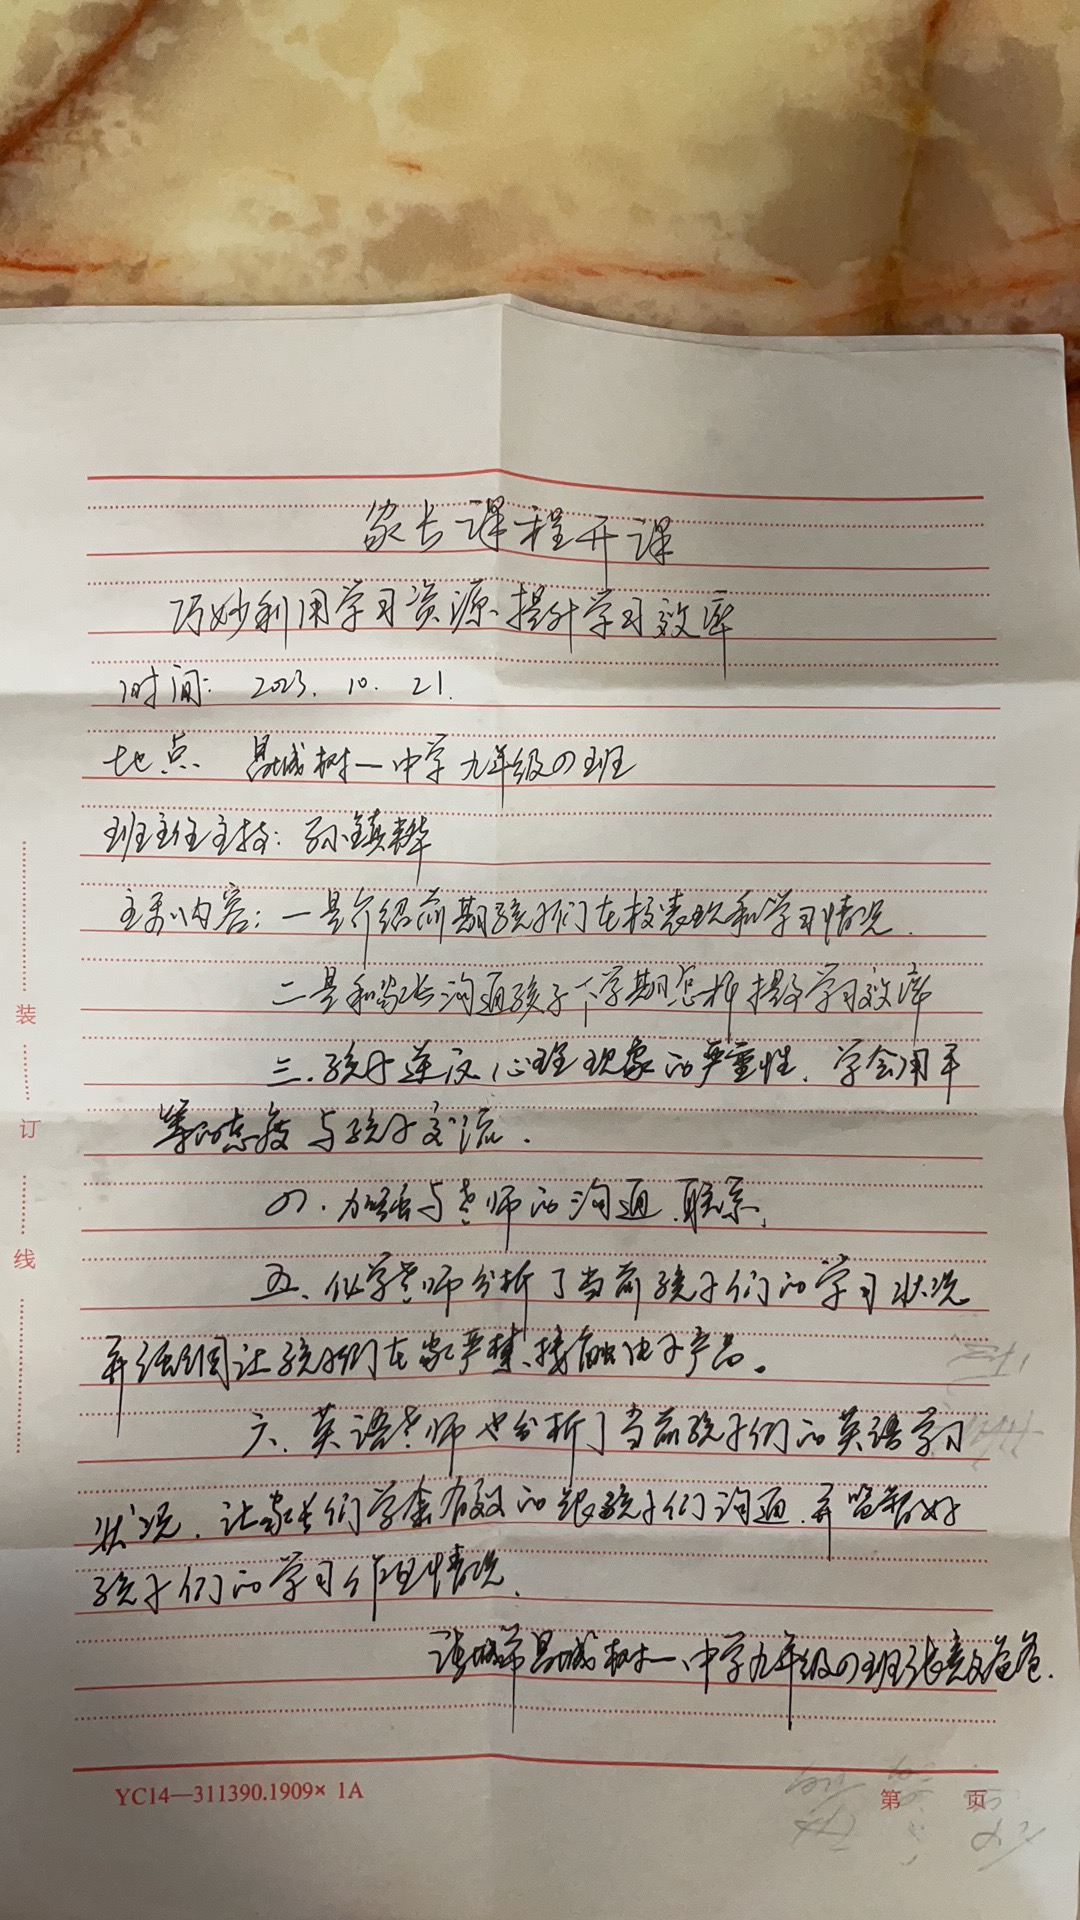 家长课程开课
巧妙利用学习资源、提升学习效率
时间: 2023. 10. 21.
地点 昌城树一中学九年级四班
班主任主持: 孙镇
主要内容: 一是介绍前期孩子们在校表现和学习情况.
二是和家长沟通孩子下学期怎样提高学习效率
三.孩子逆反心理现象的严重性.学会用平
等的态度与孩子交流.
四.加强与老师的沟通.联系.
五、化学老师分析了当前孩子们的学习状况
并强调让孩子们在家严禁接触电子产品。
六.英语老师也分析了当前孩子们的英语学习
状况.让家长们学会有效的跟孩子们沟通.并监督好
孩子们的学习作理情况.
诸城市昌城树一中学九年级四班张爸爸.
装
订
线
YC14—311390.1909× 1A
第 页